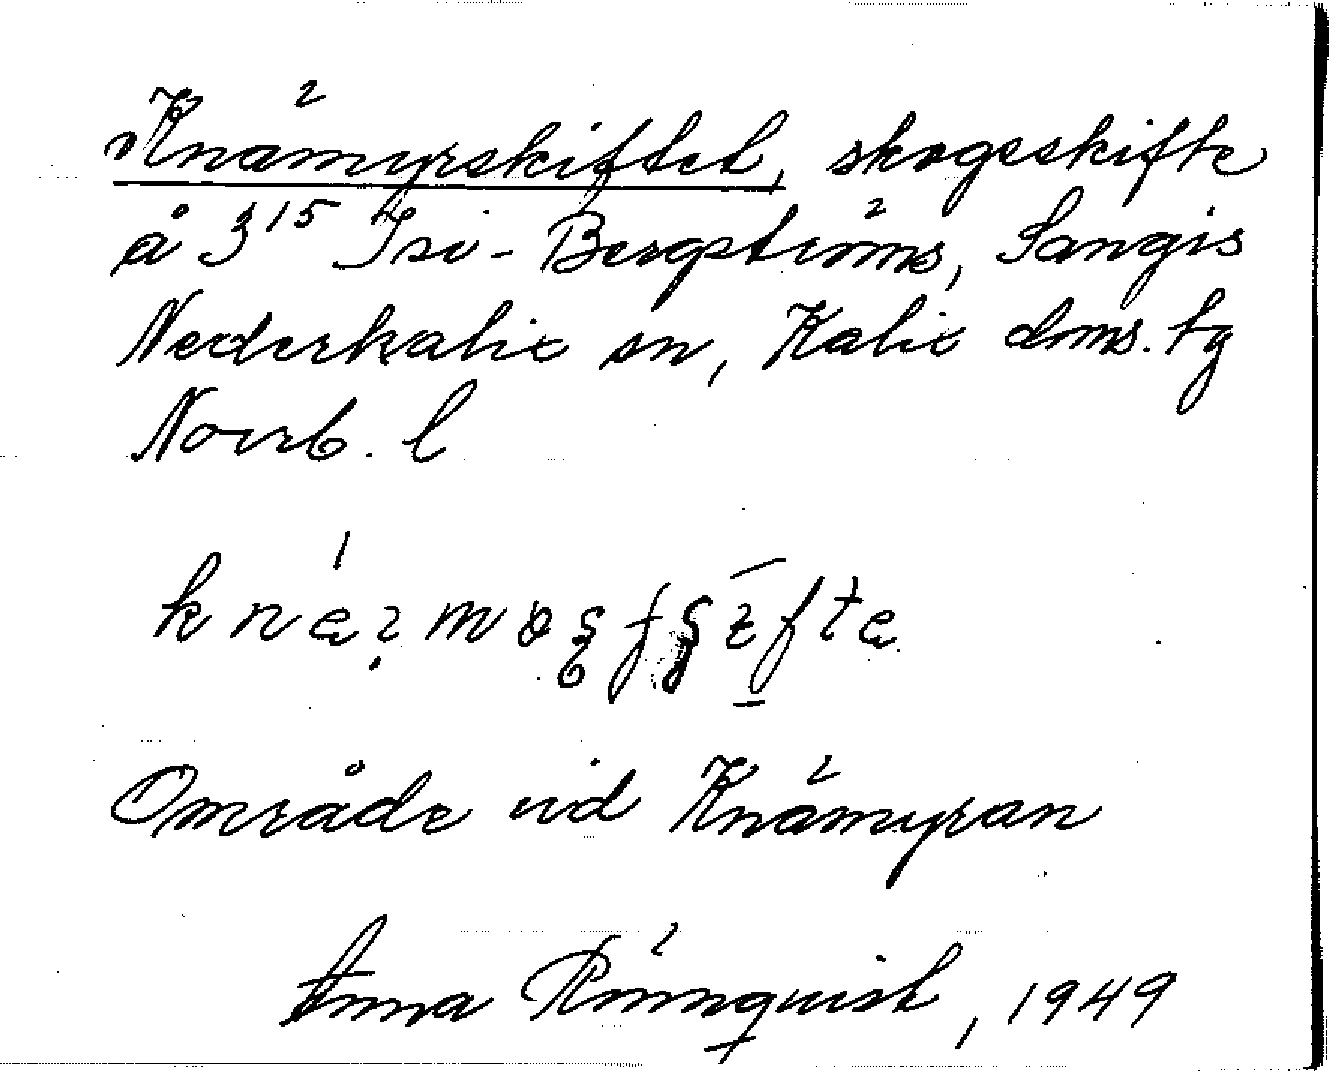 Knämyrskiftet, skogsskifte
å 3¹⁵ Iso-Bergströms, Sangis
Nederkalix sn, Kalix doms. tg
Norrb. l
Område vid Knämyran
Anna Rönnquist, 1949